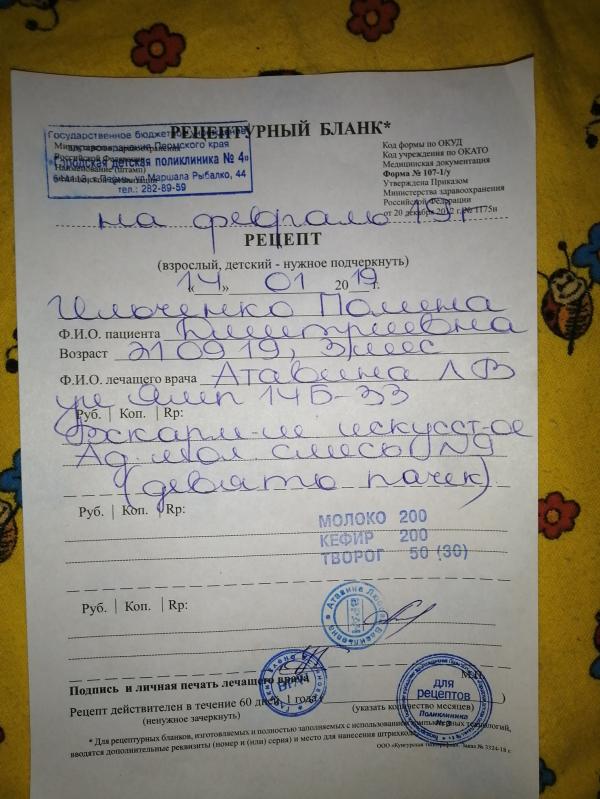 РЕЦЕПТУРНЫЙ БЛАНК*
Государственное бюджетное
здравоохранения Пермского края
"Городская детская поликлиника № 4"
г. Пермь, ул. Маршала Рыбалко, 44
тел.: 282-89-59
Код формы по ОКУД
Код учреждения по ОКАТО
Медицинская документация
Форма № 107-1/у
Утверждена Приказом
Министерства здравоохранения
Российской Федерации
от 20 декабря 2012 г. № 1175н
на февраль 19г
РЕЦЕПТ
(взрослый, детский - нужное подчеркнуть)
«14» 01 2019г.
Ильченко Полина
Ф.И.О. пациента Дмитриевна
Возраст 21 09 19, 3 мес
Ф.И.О. лечащего врача Атавина ЛВ
ул Ямп 14Б-33
Руб. | Коп. | Rp:
Вскарм-ие искусст-ое
Ад мол смесь N9
(девять пачек)
Руб. | Коп. | Rp:
МОЛОКО 200
КЕФИР 200
ТВОРОГ 50 (30)
Руб. | Коп. | Rp:
Подпись и личная печать лечащего врача
М.П.
Рецепт действителен в течение 60 дней, 1 года (
)
(ненужное зачеркнуть)
(указать количество месяцев)
для
рецептов
Поликлиника
№ 3
* Для рецептурных бланков, изготовляемых и полностью заполняемых с использованием компьютерных технологий,
вводятся дополнительные реквизиты (номер и (или) серия) и место для нанесения штрихкода
ООО «Кунгурская типография» Заказ № 3324-18 г.